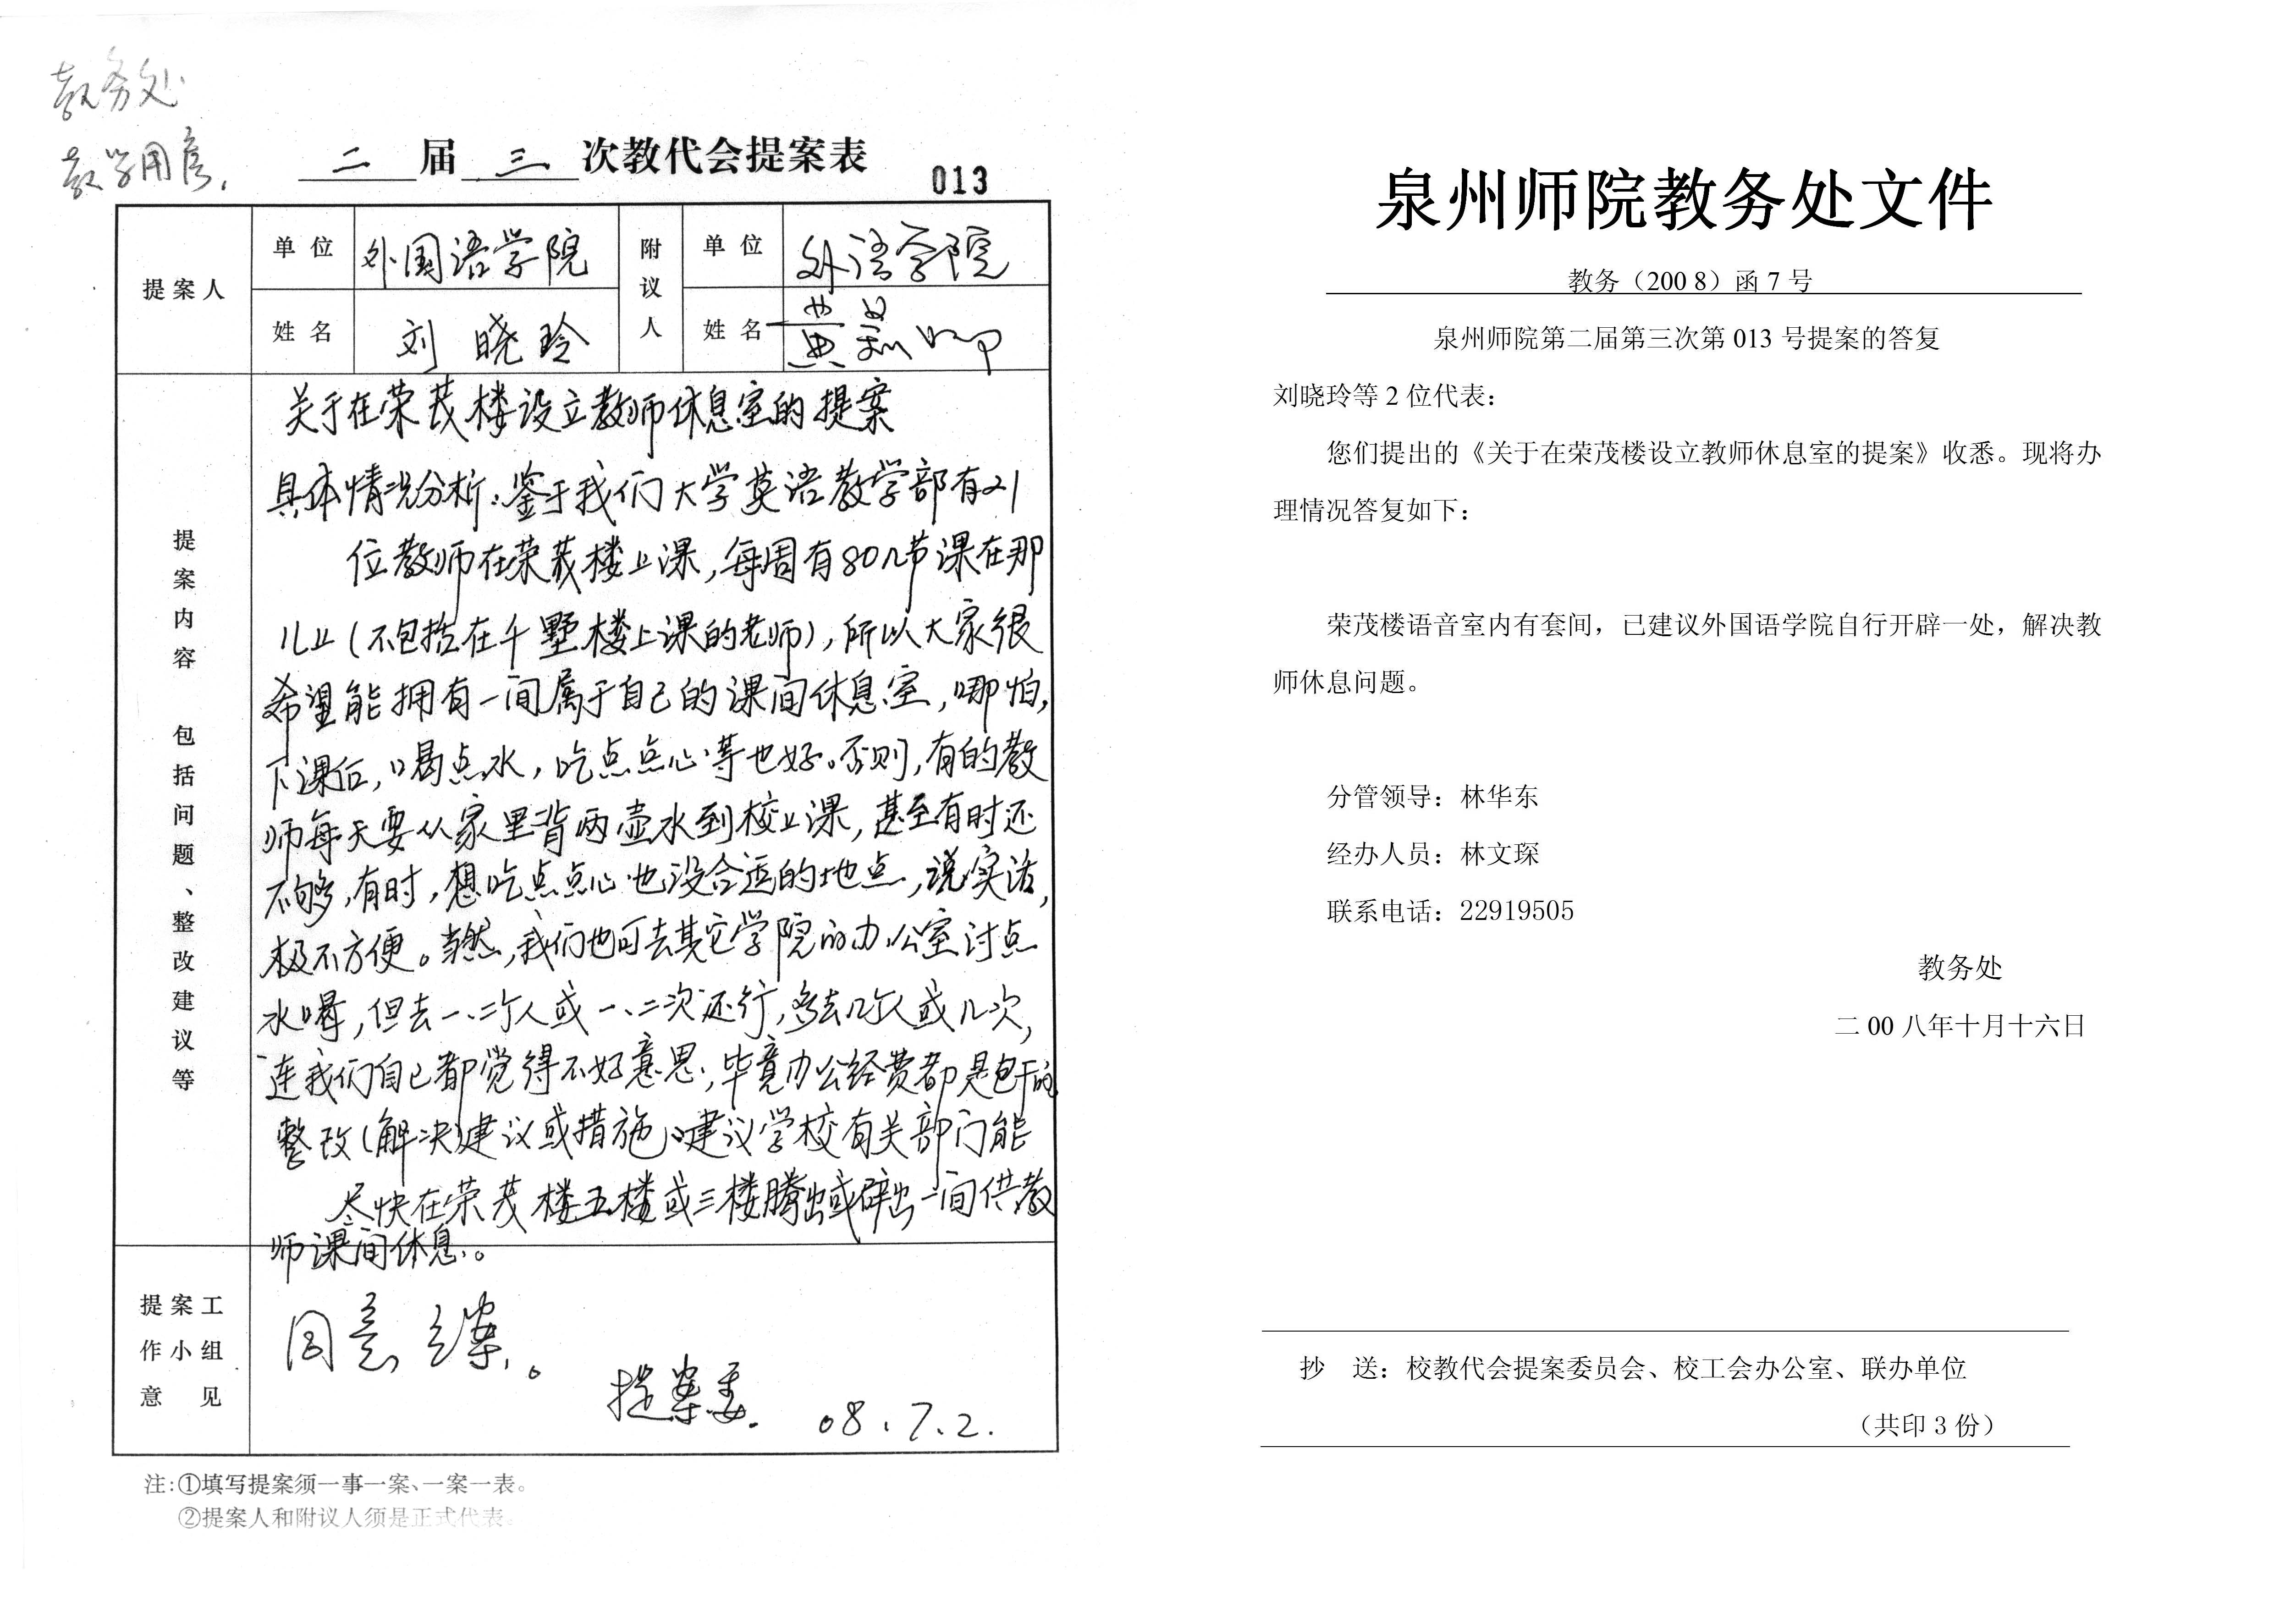 教务处
教学用房.
二届三次教代会提案表
013
提案人
单位
外国语学院
附议人
单位
外语学院
姓名
刘晓玲
姓名
黄
提案内容 包括问题、整改建议等
关于在荣茂楼设立教师休息室的提案
具体情况分析:鉴于我们大学英语教学部有21
位教师在荣茂楼上课,每周有80几节课在那
儿上(不包括在千墅楼上课的老师),所以大家很
希望能拥有一间属于自己的课间休息室,哪怕,
下课后,喝点水,吃点点心等也好。否则,有的教
师每天要从家里背两壶水到校上课,甚至有时还
不够,有时,想吃点点心也没合适的地点,说实话,
极不方便。当然,我们也可去其它学院的办公室讨点
水喝,但去一、二个人或一、二次还行,多去几个人或几次,
连我们自已都觉得不好意思,毕竟办公经费都是包干的
整改(解决)建议或措施:建议学校有关部门能
尽快在荣茂楼五楼或三楼腾出或辟出一间供教
师课间休息。
提案工
作小组
意见
同意立案。
提案委. 08.7.2.
注:①填写提案须一事一案、一案一表。
②提案人和附议人须是正式代表。
泉州师院教务处文件
教务(200 8)函 7 号
泉州师院第二届第三次第 013 号提案的答复
刘晓玲等 2 位代表:
您们提出的《关于在荣茂楼设立教师休息室的提案》收悉。现将办
理情况答复如下:
荣茂楼语音室内有套间,已建议外国语学院自行开辟一处,解决教
师休息问题。
分管领导:林华东
经办人员:林文琛
联系电话:22919505
教务处
二 00 八年十月十六日
抄 送:校教代会提案委员会、校工会办公室、联办单位
(共印 3 份)